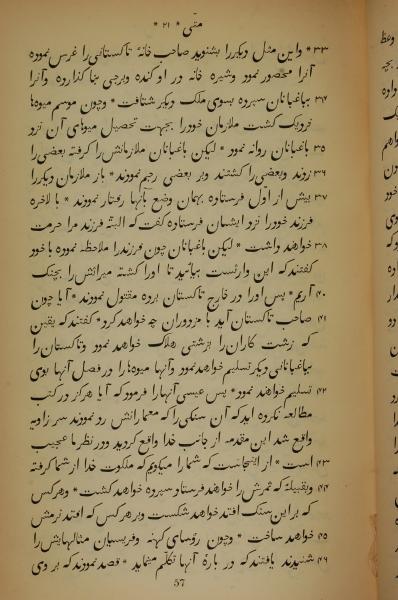 متی * ۲۱ *
۳۳ * واین مثل دیگررا بشنوید صاحب خانهٔ تاکستانی‌را غرس نموده
آنرا محصور نمود وشیره خانه در او کنده وبرجی بنا گذارده وآنرا
۳۴ بباغبانان سپرده بسوی ملک دیگر شتافت * وچون موسم میوه‌ها
نزدیک گشت ملازمان خودرا بجهت تحصیل میوهای آن نزد
۳۵ باغبانان روانه نمود * لیکن باغبانان ملازمانش‌را گرفته بعضی‌را
۳۶ زدند وبعضی‌را کشتند وبر بعضی رجم نمودند * باز ملازمان دیگررا
۳۷ بیش از اول فرستاده بهمان وضع بآنها رفتار نمودند * بالاخره
فرزند خودرا نزد ایشان فرستاده گفت که البته فرزند مرا حرمت
۳۸ خواهند داشت * لیکن باغبانان چون فرزندرا ملاحظه نموده با خود
گفتند که این وارثست بیائید تا اورا کشته میراثش‌را بچنگ
آریم * پس اورا در خارج تاکستان برده مقتول نمودند * آیا چون
۴۰
۴۱ صاحب تاکستان آید با مزدوران چه خواهد کرد * گفتند که یقین
که زشت کاران‌را بزشتی هلاک خواهد نمود وتاکستان‌را
بباغبانانی دیگر تسلیم خواهد نمود وآنها میوه‌هارا در فصل آنها بوی
۴۲ تسلیم خواهند نمود * پس عیسی آنهارا فرمود که آیا هرگز در کتب
مطالعه نکرده اید که آن سنگی‌را که معمارانش رد نمودند سر زاویه
واقع شد این مقدمه از جانب خدا واقع گردید ودر نظر ما عجیب
۴۳ است * از اینجاست که شمارا میگویم که ملکوت خدا از شما گرفته
۴۴ وبقبیلهٔ که ثمرش‌را خواهند فرستاد سپرده خواهد گشت * وهرکس
که بر این سنگ افتد خواهد شکست وبر هرکس که افتد نرمش
۴۵ خواهد ساخت * وچون رؤسای کهنه وفریسیان مثالهایش‌را
۴۶ شنیدند یافتند که در بارهٔ آنها تکلّم مینماید * قصد نمودند که بر وی
57